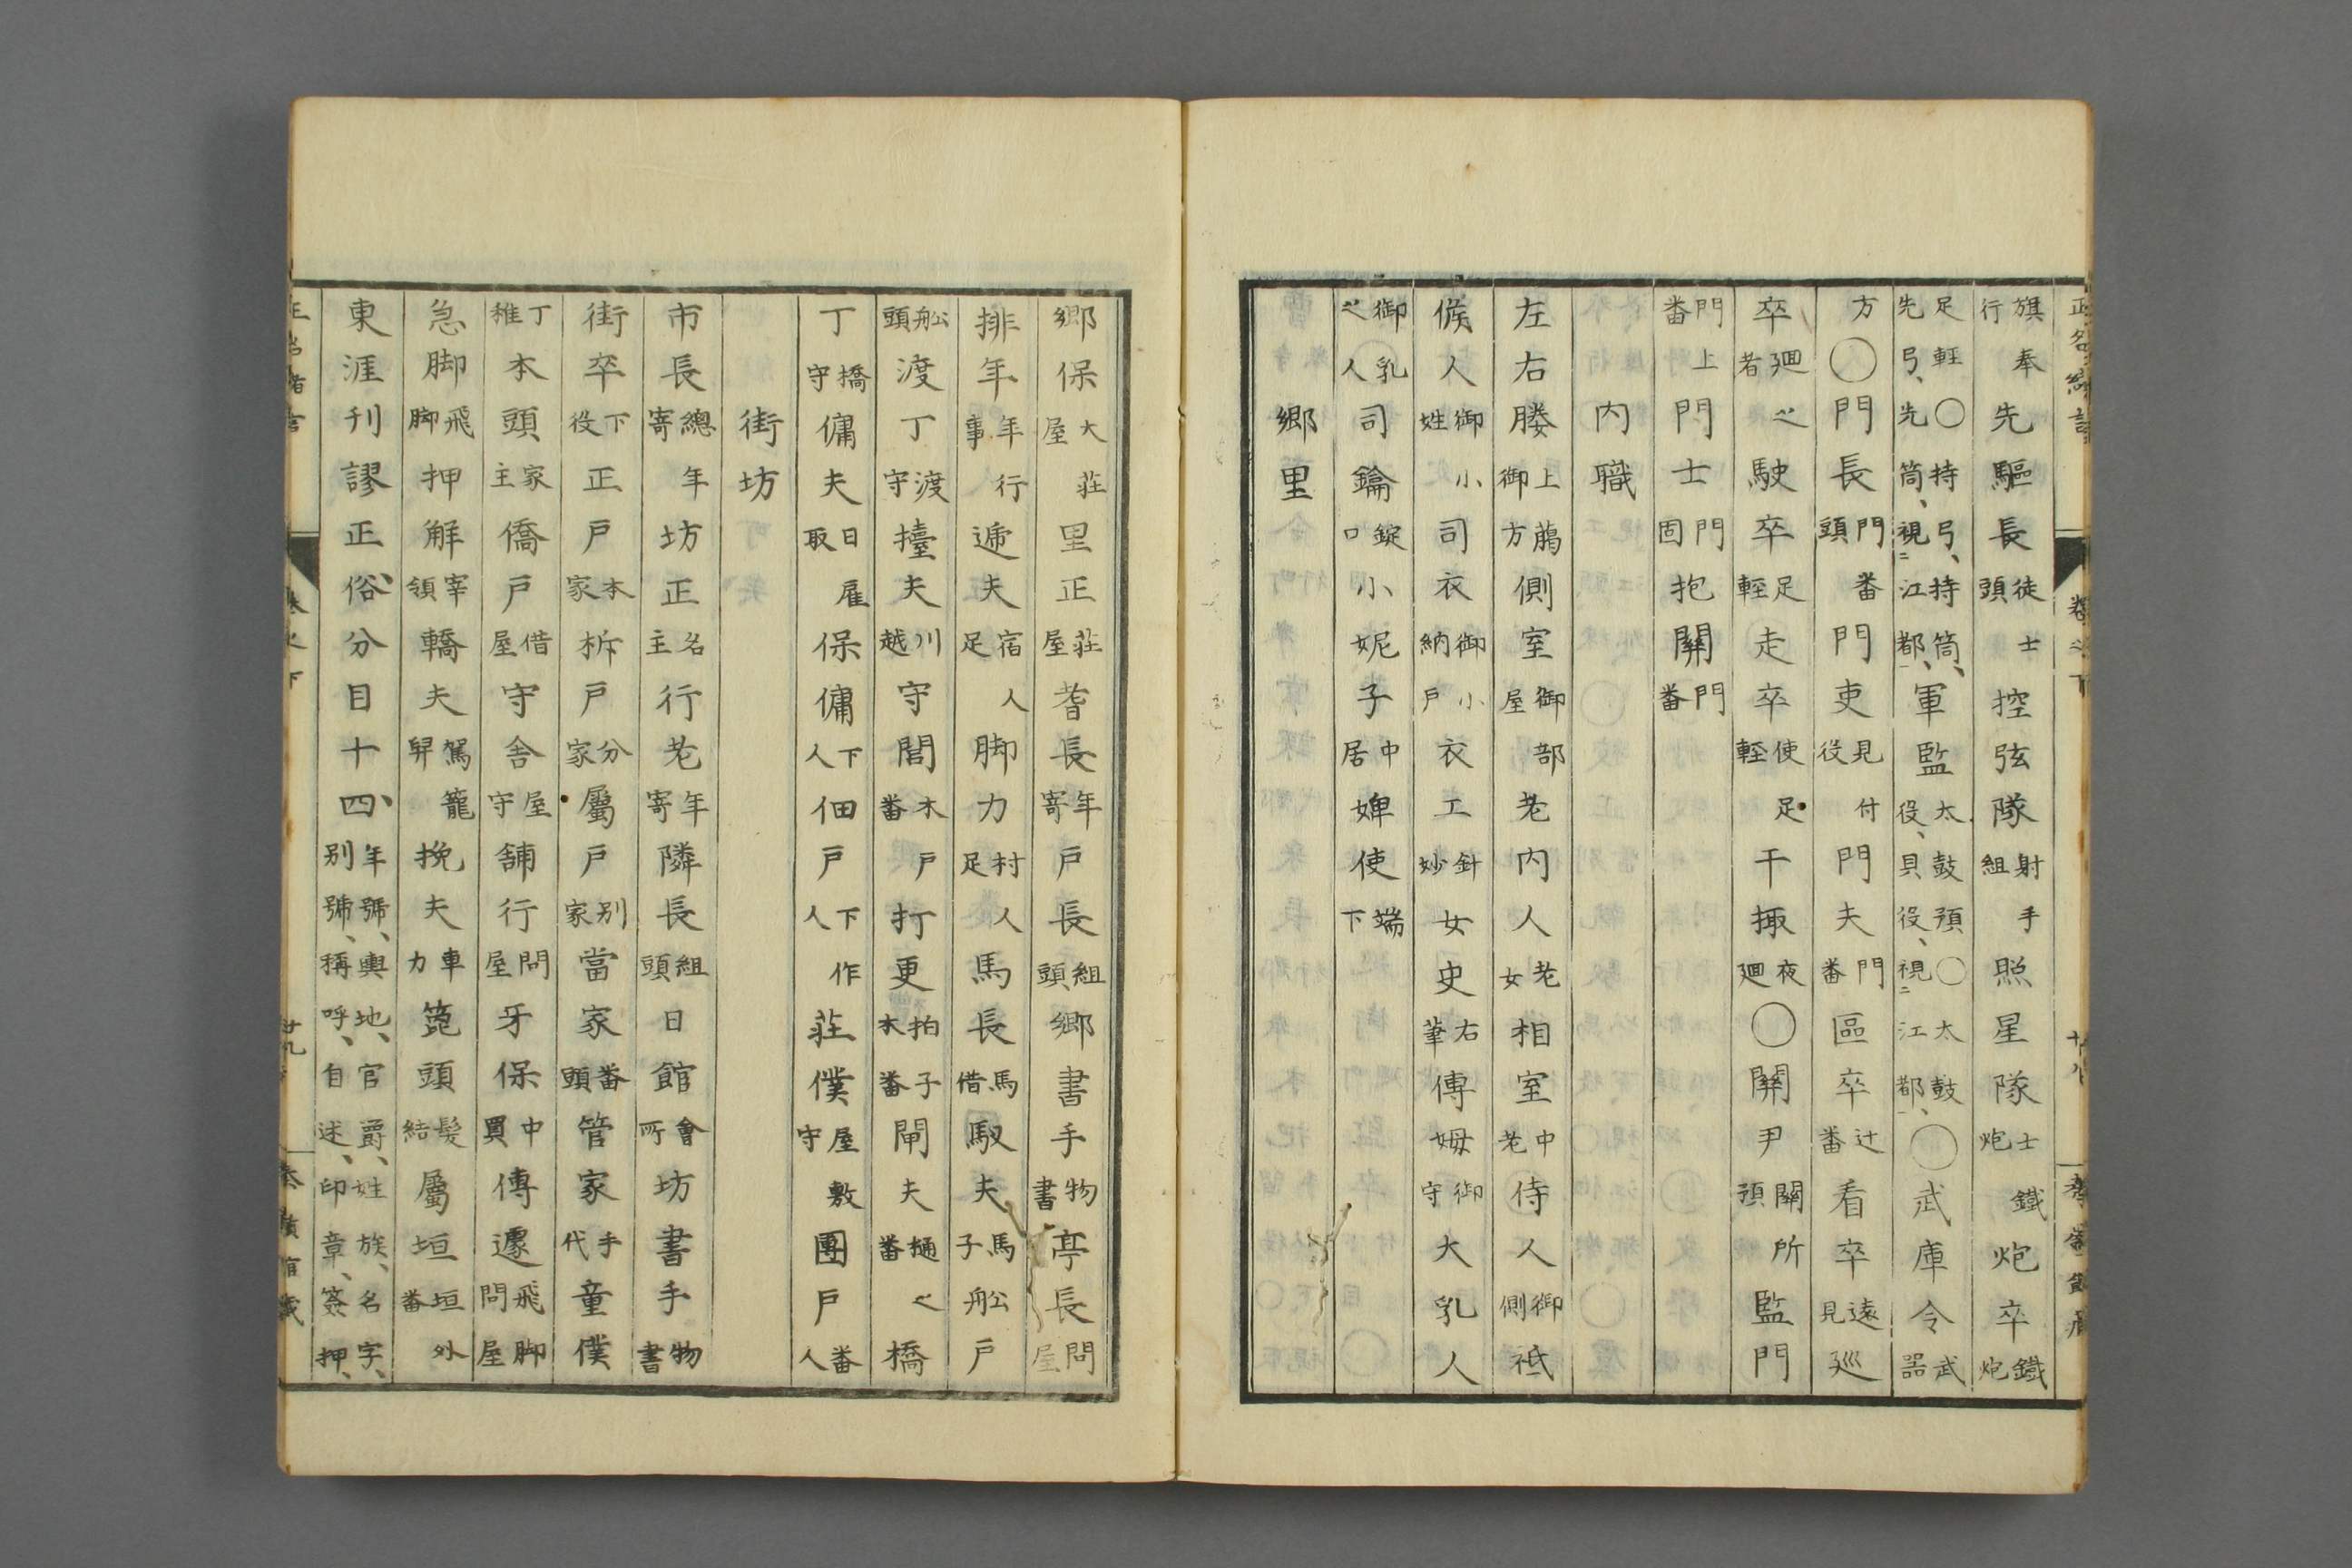 正名緒言 卷之下
旗奉行先驅長徒士頭控弦隊射手組照星隊士鐵炮炮卒鐵炮
足輕〇持弓、持筒、先弓、先筒、視ニ江都、軍監太鼓預〇太鼓役、貝役、視ニ江都、〇武庫令武器
方〇門長門番頭門吏見付役門夫門番區卒辻番看卒遠見巡
卒廻之者駛卒足輕走卒使足輕干掫夜廻〇關尹關所預監門
門上番門士門固抱關門番
內職
左右媵上臈御方側室御部屋老內人老女相室中老侍人御側祗
候人御小姓司衣御小納戶衣工針妙女史右筆傅姆御守大乳人
御乳之人司鑰錠口小妮子中居婢使端下
鄉里
鄉保大莊屋里正莊屋耆長年寄戶長組頭鄉書手物書亭長問屋
排年年行事遞夫宿人足脚力村人足馬長馬借馭夫馬子舩戶
舩頭渡丁渡守擡夫川越守閭木戶番打更拍子木番閘夫樋之番橋
丁橋守傭夫日雇取保傭下人佃戶下作人莊僕屋敷守團戶番人
街坊
市長總年寄坊正名主行老年寄隣長組頭日館會所坊書手物書
街卒下役正戶本家柝戶分家屬戶別家當家番頭管家手代童僕
丁稚本頭家主僑戶借屋守舍屋守舖行問屋牙保中買傳遽飛脚問屋
急脚飛脚押解宰領轎夫駕籠舁挽夫車力箆頭髮結屬垣垣外番
東涯刊謬正俗、分目十四、年號、輿地、官爵、姓族、名字、別號、稱呼、自述、印章、簽押、